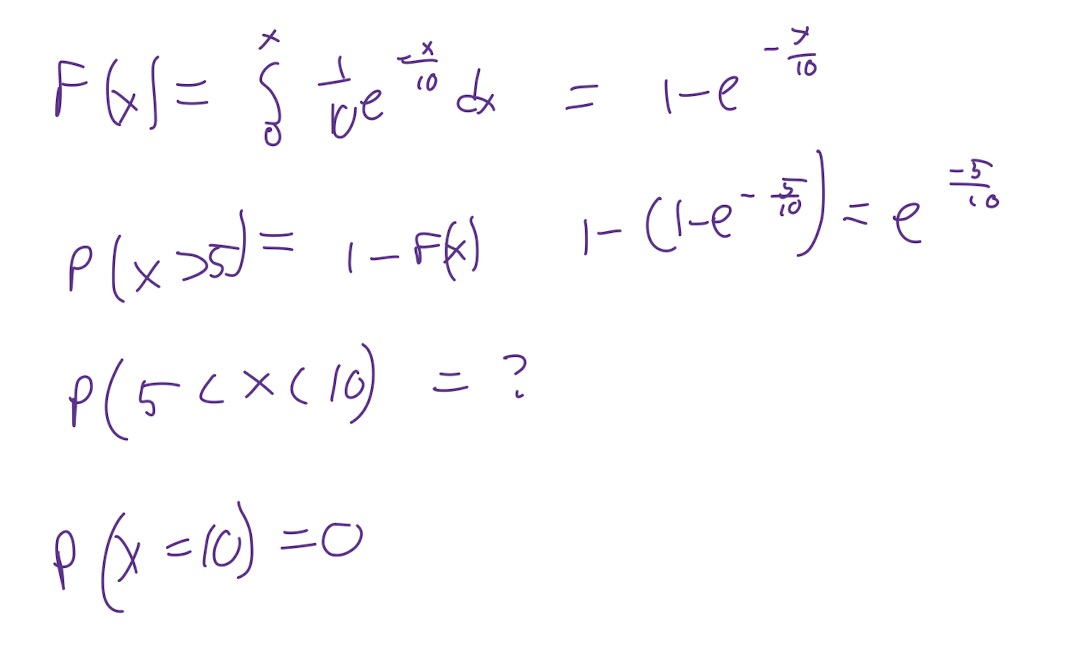 F(x) = ∫₀ˣ 1/10 e^(-x/10) dx = 1-e^(-x/10)
P(x>5) = 1-F(x) 1-(1-e^(-5/10)) = e^(-5/10)
P(5<x<10) = ?
P(x=10)=0